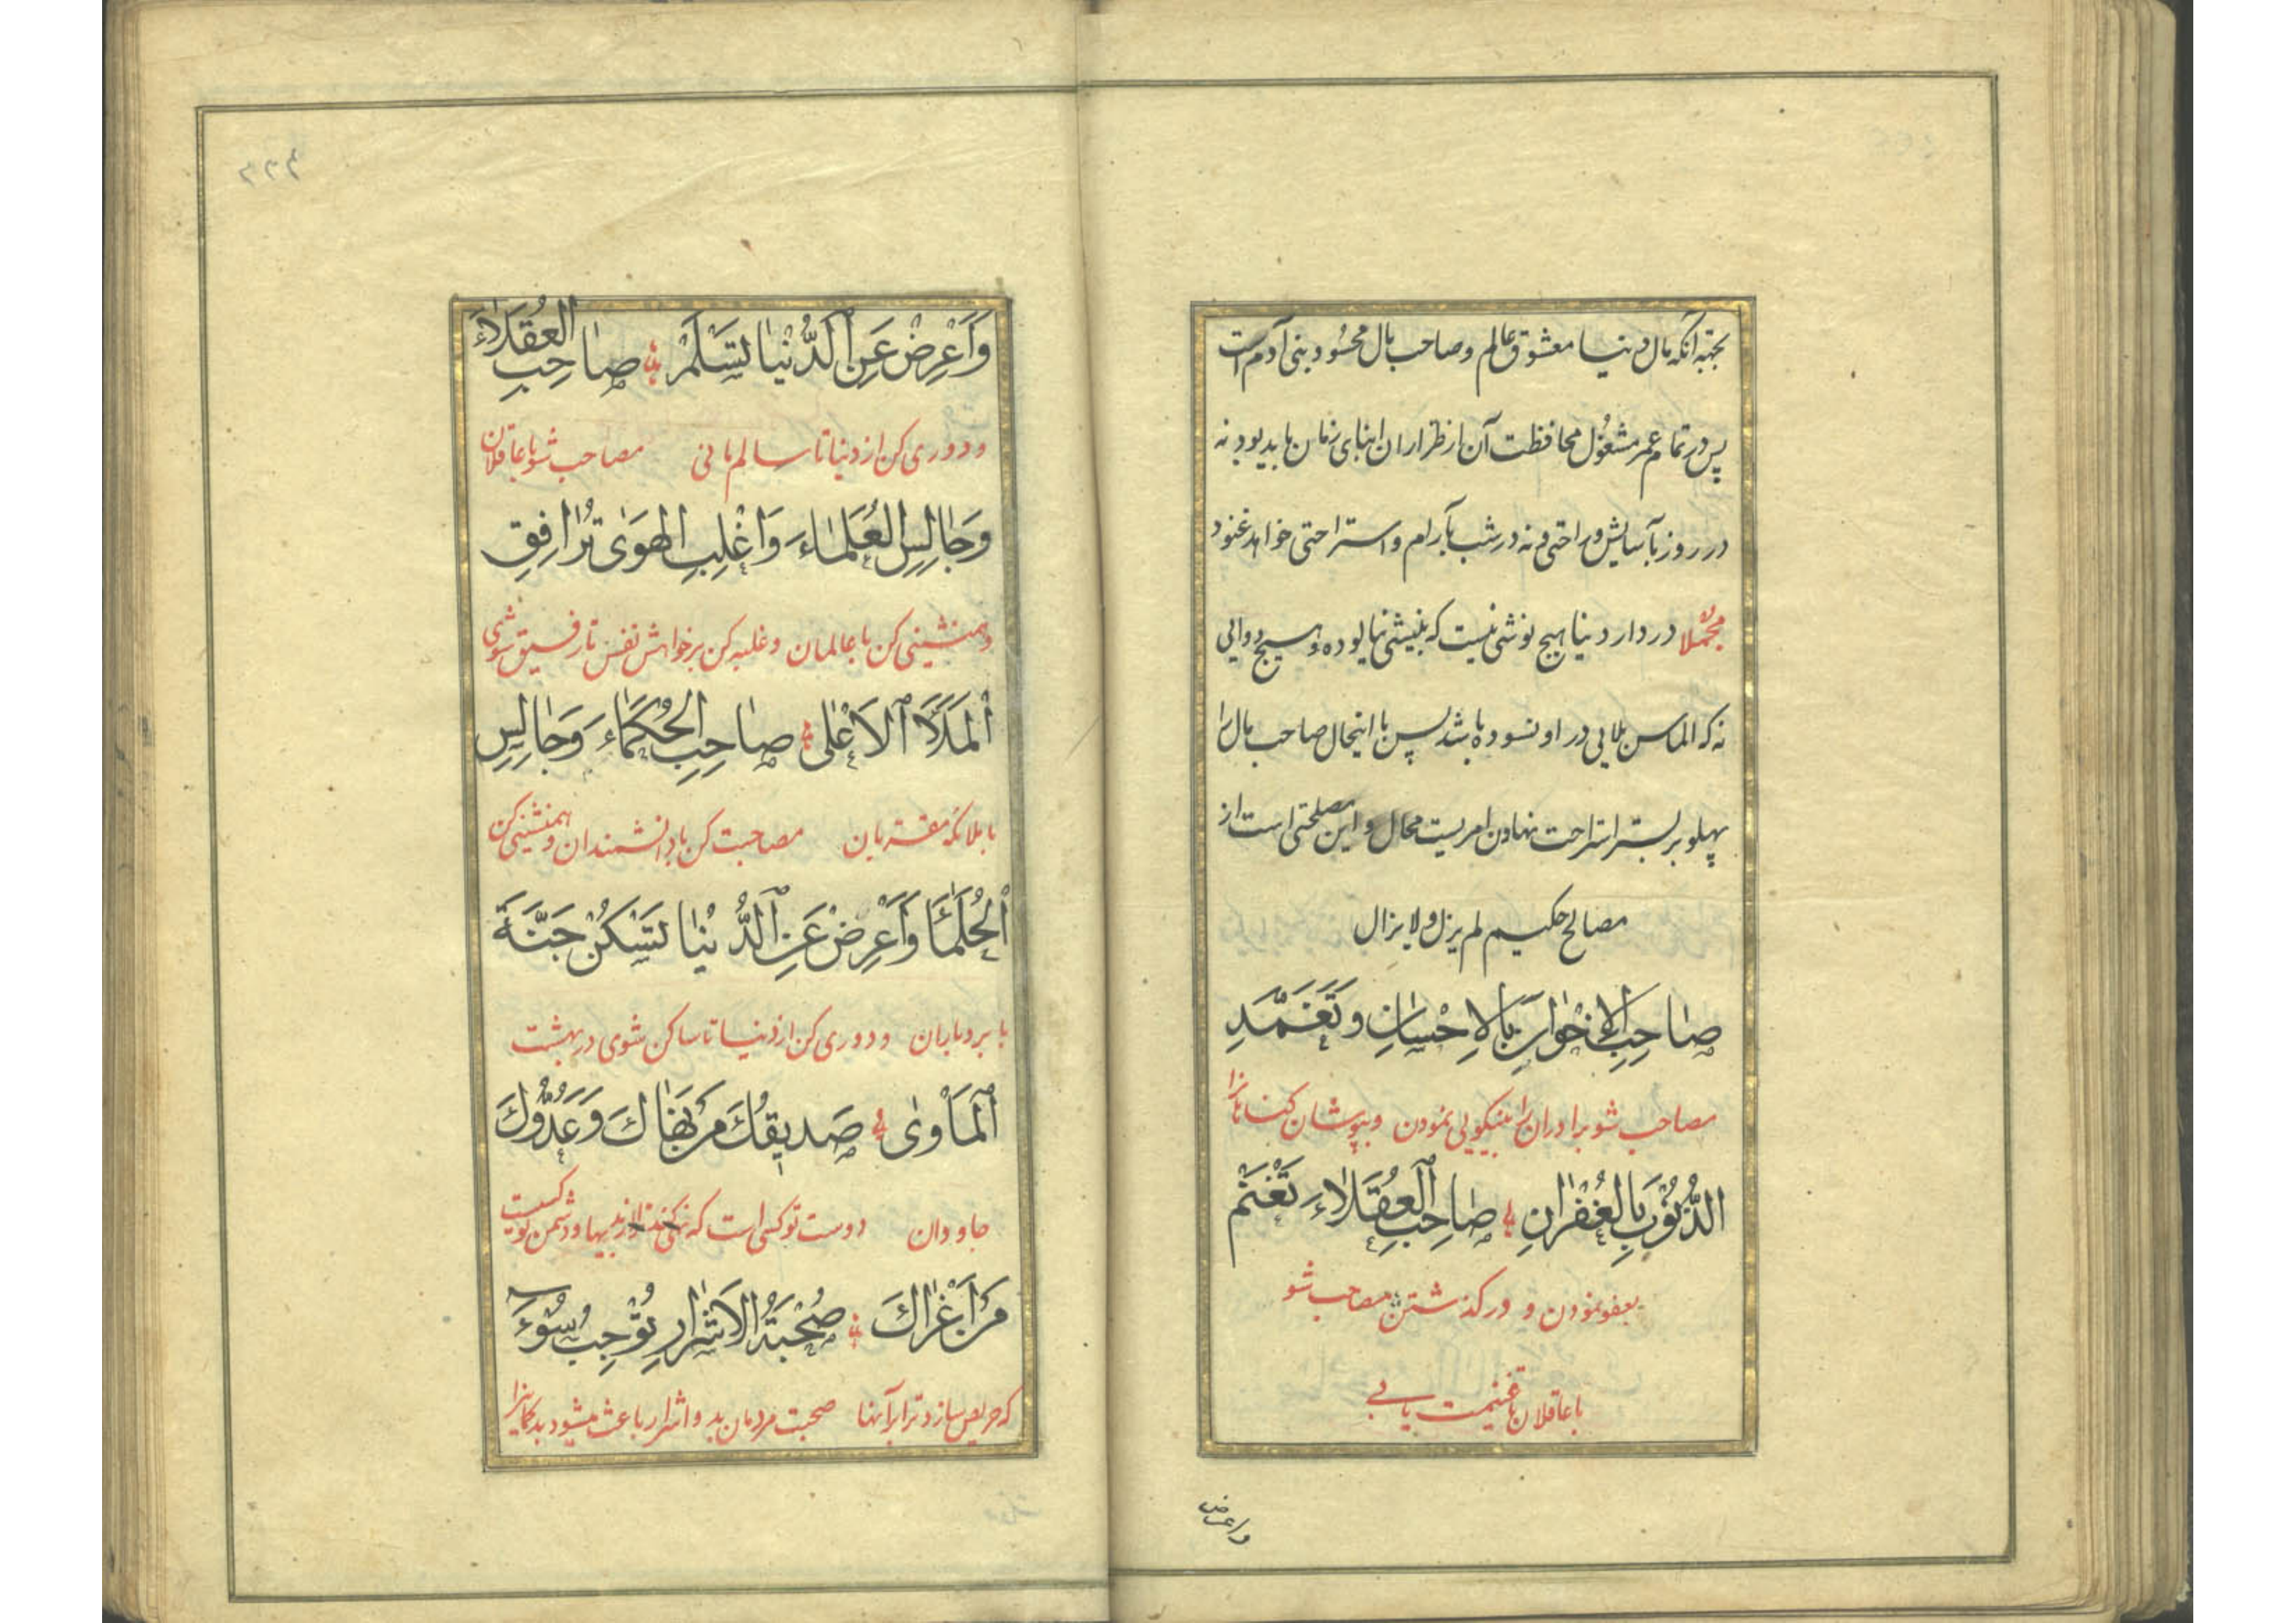 بجهة آنکه مال دنیا معشوق عالم و صاحب مال محسود بنی آدم است
پس در تمام عمر مشغول محافظت آن از طراران ابنای زمان باید بود نه
در روز بآسایش و راحتی و نه در شب بآرام و استراحتی خواهد غنود
مجملا در دار دنیا هیچ نوشی نیست که بنیشی نیالوده و هیچ دوایی
نه که الماس بلایی در او نسوده باشد پس با اینحال صاحب مال را
پهلو بر بستر استراحت نهادن امریست محال و این مصلحتی است از
مصالح حکیم لم یزل و لا یزال
صَاحِبِ الاِخْوَانَ بِالاِحْسَانِ وَتَغَمَّدِ
مصاحب شو برادران را بنیکویی نمودن و بپوشان گناهانرا
الذُّنُوبَ بِالْغُفْرَانِ صَاحِبِ الْعُقَلَاءَ تَغْنَمْ
بعفو نمودن و در گذشتن مصاحب شو
با عاقلان تا غنیمت یابی
واعرض
۲۲۲
وَأَعْرِضْ عَنِ الدُّنْيَا تَسْلَمْ صَاحِبِ الْعُقَلَاءَ
و دوری کن از دنیا تا سالم مانی مصاحب شو با عاقلان
وَجَالِسِ الْعُلَمَاءَ وَاغْلِبِ الْهَوَى تُرَافِقِ
و همنشینی کن با عالمان و غلبه کن بر خواهش نفس تا رفیق شوی
الْمَلَأَ الْأَعْلَى صَاحِبِ الْحُكَمَاءَ وَجَالِسِ
با ملائکه مقربان مصاحبت کن با دانشمندان و همنشینی کن
الْحُلَمَاءَ وَأَعْرِضْ عَنِ الدُّنْيَا تَسْكُنْ جَنَّةَ
با بردباران و دوری کن از دنیا تا ساکن شوی در بهشت
الْمَأْوَى صَدِيقُكَ مَنْ نَهَاكَ وَعَدُوُّكَ
جاودان دوست تو کسی است که نهی کند ترا از بدیها و دشمن تو کسیست
مَنْ أَغْرَاكَ صُحْبَةُ الْأَشْرَارِ تُوجِبُ سُوءَ
که حریص سازد ترا بر آنها صحبت مردمان بد و اشرار باعث میشود بدگمانیرا